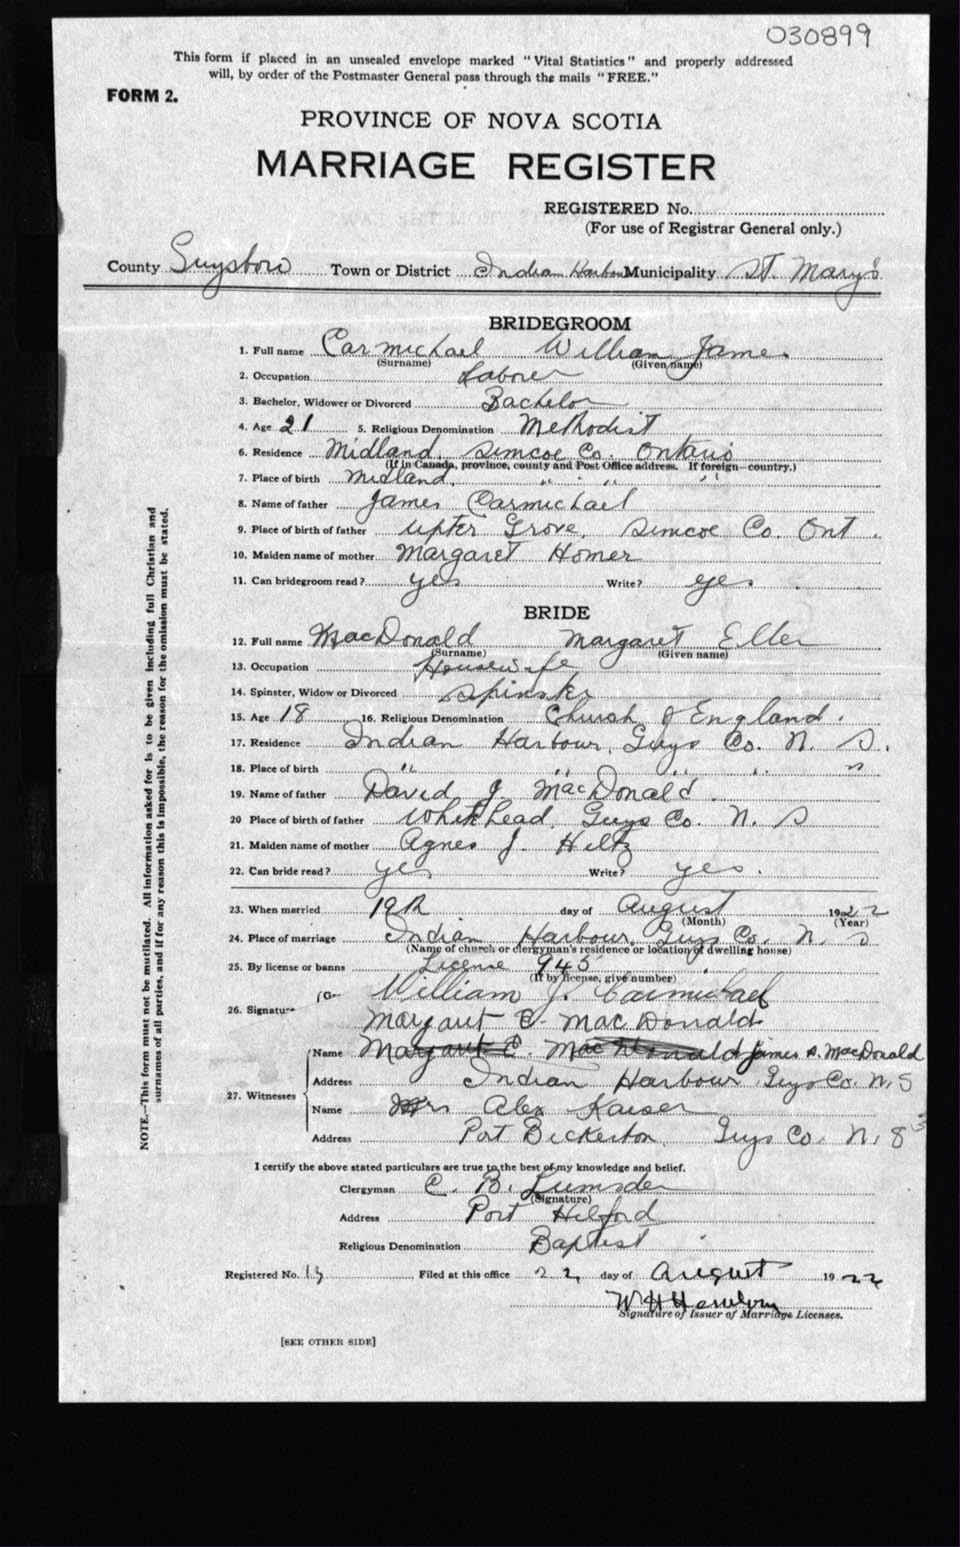 030899
This form if placed in an unsealed envelope marked "Vital Statistics" and properly addressed
will, by order of the Postmaster General pass through the mails "FREE."
FORM 2.
PROVINCE OF NOVA SCOTIA
MARRIAGE REGISTER
REGISTERED No.
(For use of Registrar General only.)
County Guysboro Town or District Indian Harbour Municipality St. Mary's
BRIDEGROOM
1. Full name Carmichael William James
(Surname) (Given name)
2. Occupation Laborer
3. Bachelor, Widower or Divorced Bachelor
4. Age 21 5. Religious Denomination Methodist
6. Residence Midland, Simcoe Co. Ontario
(If in Canada, province, county and Post Office address. If foreign—country.)
7. Place of birth Midland, " " "
8. Name of father James Carmichael
9. Place of birth of father Grove, Simcoe Co. Ont.
10. Maiden name of mother Margaret Homer
11. Can bridegroom read? yes Write? yes
BRIDE
12. Full name MacDonald Margaret Ellen
(Surname) (Given name)
13. Occupation Housewife
14. Spinster, Widow or Divorced Spinster
15. Age 18 16. Religious Denomination Church of England.
17. Residence Indian Harbour, Guys Co. N. S.
18. Place of birth " " " " "
19. Name of father David J. MacDonald
20 Place of birth of father Whitehead, Guys Co. N. S
21. Maiden name of mother Agnes J. Hiltz
22. Can bride read? yes Write? yes.
23. When married 19th day of August 1922
(Month) (Year)
24. Place of marriage Indian Harbour, Guys Co. N. S
(Name of church or clergyman's residence or location of dwelling house)
25. By license or banns License 945
(If by license, give number)
26. Signature William J. Carmichael
Margaret E. MacDonald
27. Witnesses
Name Margaret E. MacDonald James A. MacDonald
Address Indian Harbour Guys Co. N. S
Name Mrs Alex Kaiser
Address Port Bickerton, Guys Co. N. S
I certify the above stated particulars are true to the best of my knowledge and belief.
Clergyman C. B. Lumsden
(Signature)
Address Port Hilford
Religious Denomination Baptist
Registered No. 13 Filed at this office 22 day of August 1922
W H
Signature of Issuer of Marriage Licenses.
[SEE OTHER SIDE]
NOTE.—This form must not be mutilated. All information asked for is to be given including full Christian and
surnames of all parties, and if for any reason this is impossible, the reason for the omission must be stated.